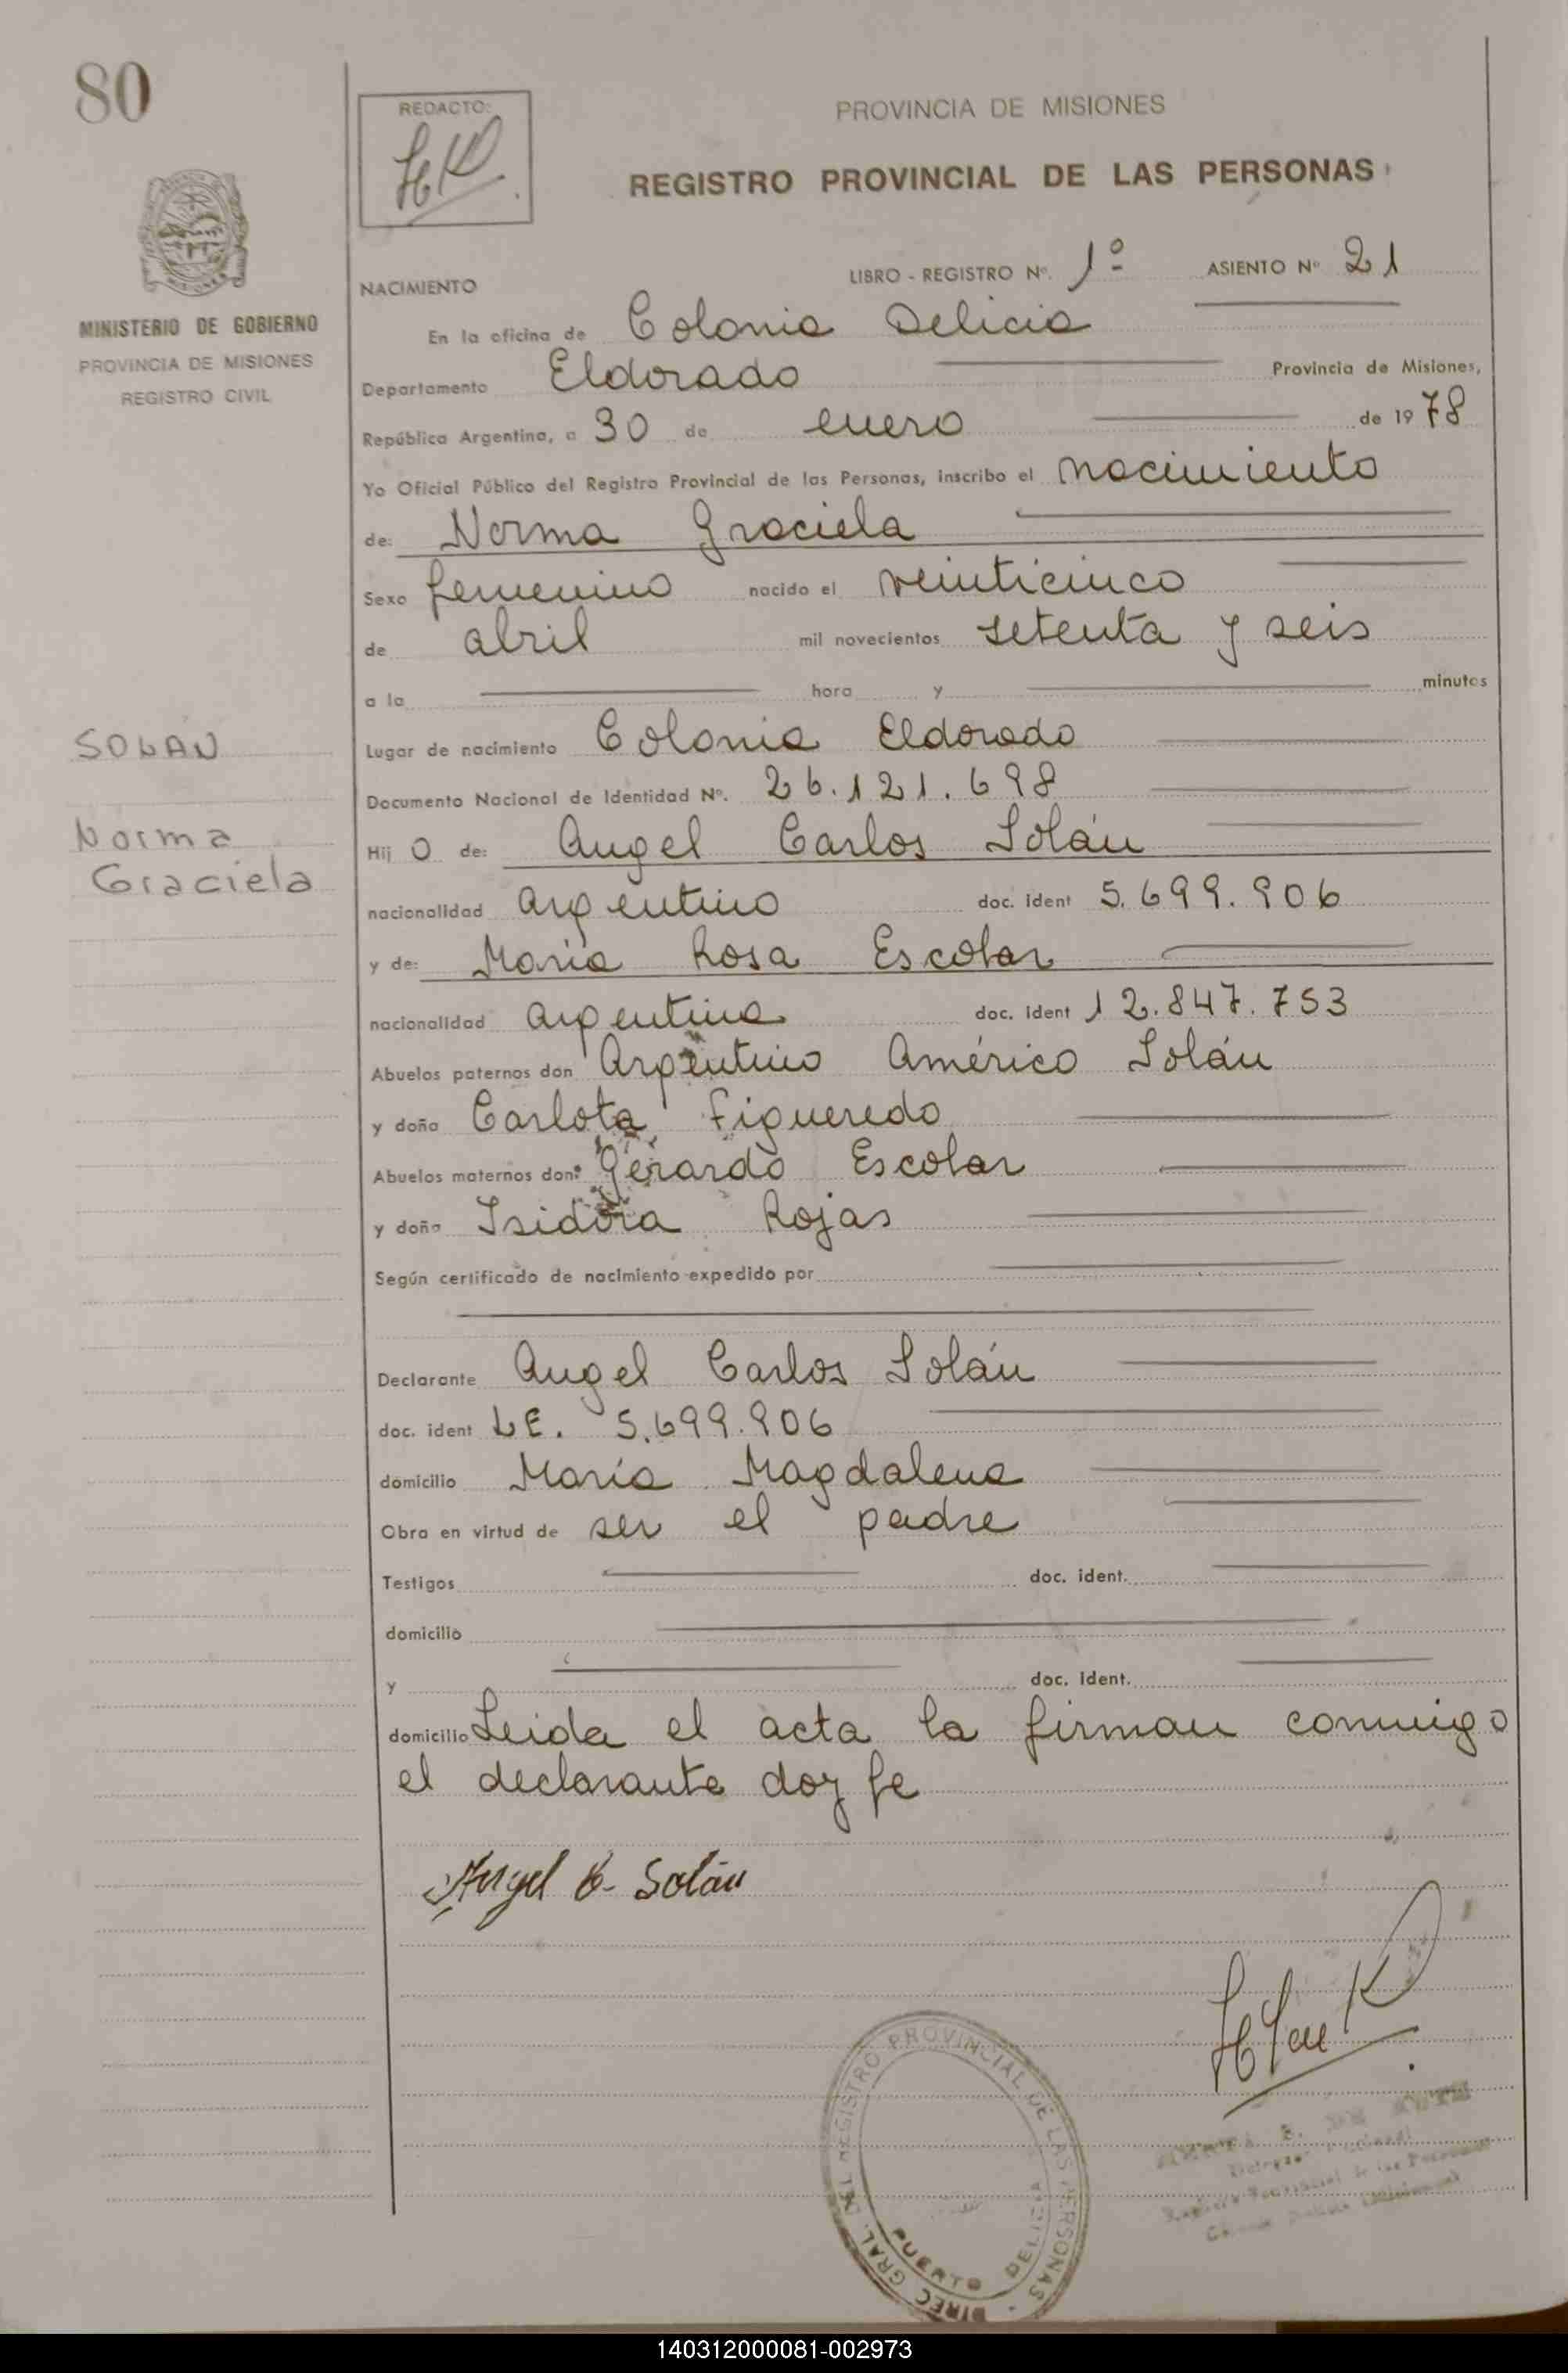 80
REDACTO:
PROVINCIA DE MISIONES
REGISTRO PROVINCIAL DE LAS PERSONAS
MINISTERIO DE GOBIERNO
PROVINCIA DE MISIONES
REGISTRO CIVIL
NACIMIENTO LIBRO - REGISTRO Nº. 1º ASIENTO Nº 21
En la oficina de Colonia Delicia
Departamento Eldorado Provincia de Misiones,
República Argentina, a 30 de enero de 1978
Yo Oficial Público del Registro Provincial de las Personas, inscribo el nacimiento
de: Norma Graciela
Sexo femenino nacido el veinticinco
de abril mil novecientos setenta y seis
a la hora y minutos
SOLAN
Lugar de nacimiento Colonia Eldorado
Documento Nacional de Identidad Nº. 26.121.698
Norma
Graciela
Hij a de: Angel Carlos Solán
nacionalidad argentino doc. ident 5.699.906
y de: María Rosa Escobar
nacionalidad argentina doc. ident 12.847.753
Abuelos paternos don Argentino Américo Solán
y doña Carlota Figueredo
Abuelos maternos don: Gerardo Escobar
y doña Isidora Rojas
Según certificado de nacimiento expedido por
Declarante Angel Carlos Solán
doc. ident L.E. 5.699.906
domicilio María Magdalena
Obra en virtud de ser el padre
Testigos doc. ident.
domicilio
y doc. ident.
domicilio Leida el acta la firman conmigo
el declarante doy fe
Angel C. Solán
DIREC. GRAL. DEL REGISTRO PROVINCIAL DE LAS PERSONAS
PUERTO DELICIA
140312000081-002973